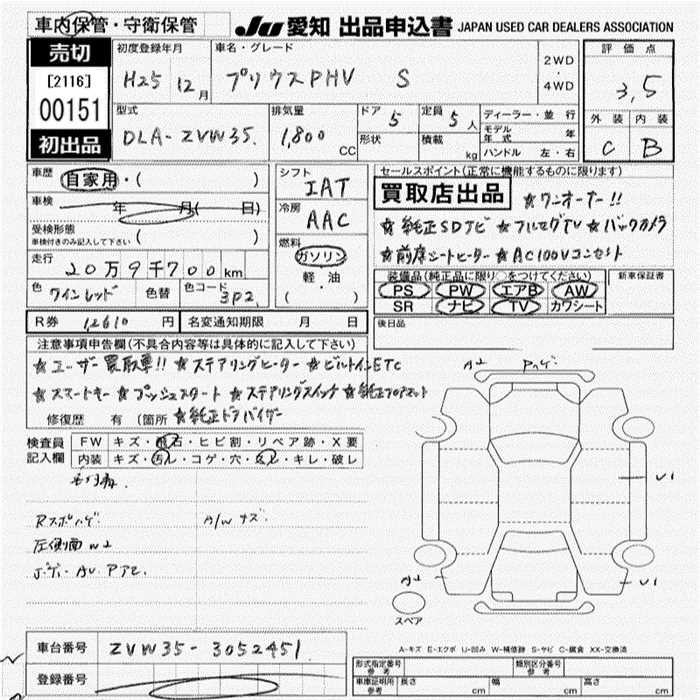 車内保管・守衛保管
JU 愛知 出品申込書 JAPAN USED CAR DEALERS ASSOCIATION
売切
[2116]
00151
初出品
初度登録年月
H25 12月
車名・グレード
プリウスPHV S
2WD
・
4WD
評価点
3.5
外装 内装
C B
型式
DLA-ZVW35.
排気量
1,800 CC
ドア 5
定員 5人
形状
積載 kg
ディーラー・並行
モデル年式 年
ハンドル 左・右
車歴 自家用・( )
車検 年 月( 日)
受検形態
車検付きのみ記入して下さい ( )
走行 20万9千700km
色 ワインレッド 色替 色コード 3P2.
シフト
IAT
冷房
AAC
燃料
ガソリン
軽・油
( )
セールスポイント(正常に機能するものに限ります)
買取店出品 ☆ワンオーナー!!
☆純正SDナビ ☆フルセグTV ☆バックカメラ
☆前席シートヒーター ☆AC100Vコンセント
装備品(純品に限り○をつけてください)
PS PW エアB AW
SR ナビ TV カワシート
新車保証書
後日品
R券 12610 円 名変通知期限 月 日
注意事項申告欄(不具合内容等は具体的に記入して下さい)
☆ユーザー買取車!! ☆ステアリングヒーター ☆ビルトインETC
☆スマートキー ☆プッシュスタート ☆ステアリングスイッチ ☆純正フロアマット
修復歴 有 (箇所 ☆純正ドラバイザー
検査員記入欄
FW キズ・飛石・ヒビ割・リペア跡・X要
内装 キズ・汚レ・コゲ・穴・スレ・キレ・破レ
Rスポハゲ A/Wキズ
左側面W2
A2
U1
A2
U1
スペア
A-キズ E-エクボ U-凹み W-補修跡 S-サビ C-腐食 XX-交換済
車台番号 ZVW35-3052451
登録番号
形式指定番号 参考
類別区分番号 参考
車庫証明用 参考 長さ cm 幅 cm 高さ cm